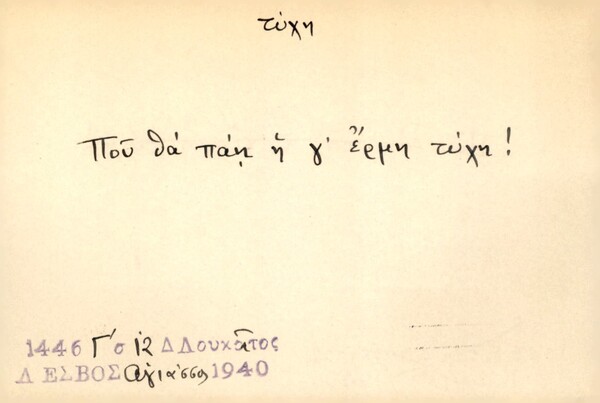 τύχη
Ποῦ θά πάῃ ἡ γ' ἔρμη τύχη!
1446 Γ' σ 12 Δ Λουκᾶτος
ΛΕΣΒΟΣ Ἁγιάσσος 1940